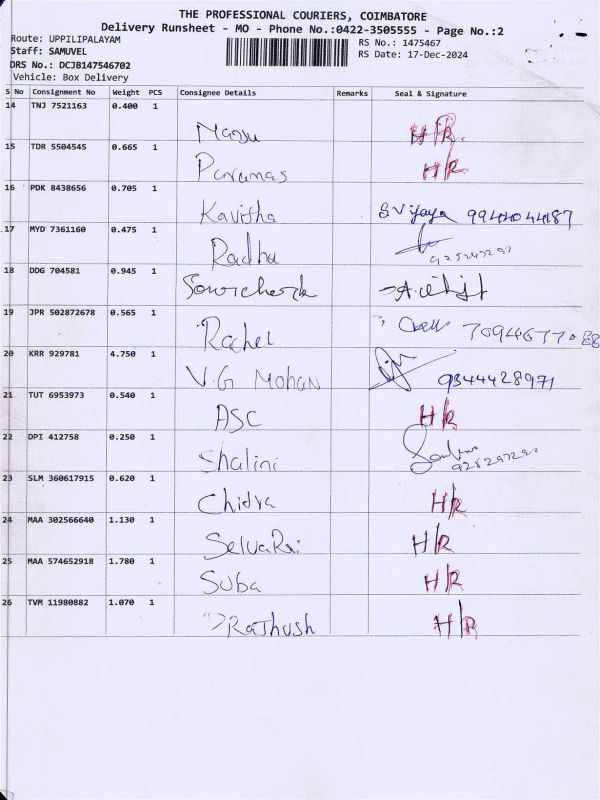 THE PROFESSIONAL COURIERS, COIMBATORE
Delivery Runsheet - MO - Phone No.:0422-3505555 - Page No.:2
Route: UPPILIPALAYAM
RS No.: 1475467
Staff: SAMUVEL
RS Date: 17-Dec-2024
DRS No.: DCJB147546702
Vehicle: Box Delivery
S No Consignment No Weight PCS Consignee Details Remarks Seal & Signature
14 TNJ 7521163 0.400 1
H/R
15 TDR 5504545 0.665 1
H/R
16 PDK 8438656 0.705 1
Kavitha S.Vijaya 9944044187
17 MYD 7361160 0.475 1
Radha
18 DDG 704581 0.945 1
19 JPR 502872678 0.565 1
Rachel
20 KRR 929781 4.750 1
V.G Mohan 9344428971
21 TUT 6953973 0.540 1
ASC H/R
22 DPI 412758 0.250 1
Shalini
23 SLM 360617915 0.620 1
Chidra H/R
24 MAA 302566640 1.130 1
SelvaRaj H/R
25 MAA 574652918 1.780 1
Suba H/R
26 TVM 11980882 1.070 1
H/R